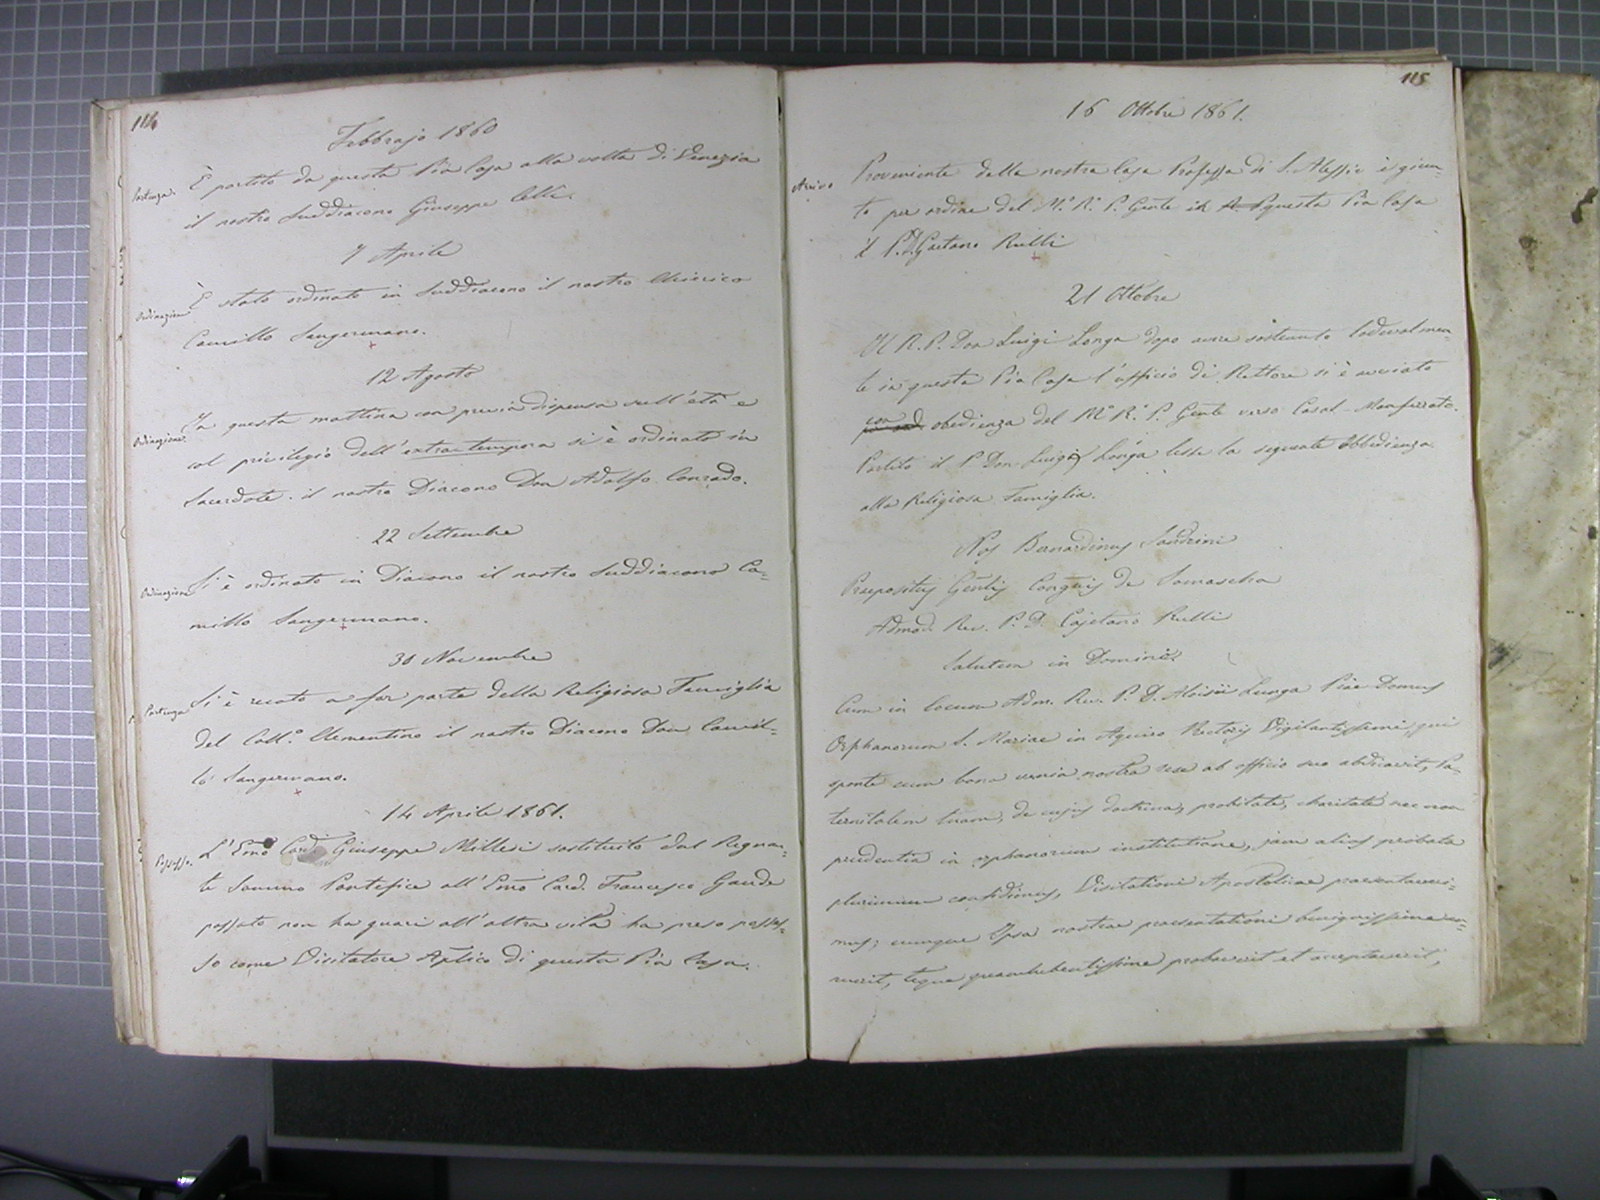 114
Febbrajo 1860
Partenza.
È partito da questa Pia Casa alla volta di Venezia
il nostro Suddiacono Giuseppe Cella.
7 Aprile
Ordinazione
È stato ordinato in Suddiacono il nostro Chierico
Camillo Sangermano.
12 Agosto
Ordinazione
In questa mattina con previa dispensa sull'età e
sol privilegio dell'extra tempora si è ordinato in
Sacerdote il nostro Diacono Don Adolfo Conrado.
22 Settembre
Ordinazione
Si è ordinato in Diacono il nostro Suddiacono Ca=
millo Sangermano.
30 Novembre
Partenza
Si è recato a far parte della Religiosa Famiglia
del Coll.o Clementino il nostro Diacono Don Camil=
lo Sangermano.
14 Aprile 1861.
Possesso.
L'Emo Card. Giuseppe Millesi sostituito dal Regnan=
te Sommo Pontefice all'Emo Card. Francesco Gaude
passato non ha guari all'altra vita ha preso posses=
so come Visitatore Aplico di questa Pia Casa.
115
16 Ottobre 1861.
Arrivo
Proveniente dalla nostra Casa Professa di S. Alessio è giun=
to per ordine del M.o R.o P. Gnle in questa Pia Casa
il P. D. Gaetano Rulli
21 Ottobre
Il R. P. Don Luigi Longa dopo avere sostenuto lodevolmen=
te in questa Pia Casa l'ufficio di Rettore si è avviato
con obedienza del M.o R.o P. Gnle verso Casal-Monferrato.
Partito il P. Don Luigi Longa lesse la seguente Obbedienza
alla Religiosa Famiglia.
Nos Bernardinus Sandrini
Praepositus Gnlis Congnis de Somascha
Admod. Rev. P. D. Cajetano Rulli
Salutem in Domino
Cum in locum Adm. Rev. P. D. Aloisii Lunga Piae Domus
Orphanorum S. Mariae in Aquiro Rectoris Vigilantissimi, qui
sponte cum bona venia nostra sese ab officio suo abdicavit, Pa=
ternitatem tuam, de cujus doctrina, probitate, charitate nec non
prudentia in orphanorum institutione, jam alias probata
plurimum confidimus, Visitationi Apostolicae praesentaveri=
mus; cumque Ipsa nostrae praesentationi benignissime an=
nuerit, teque quamlubentissime probaverit et acceptaverit,